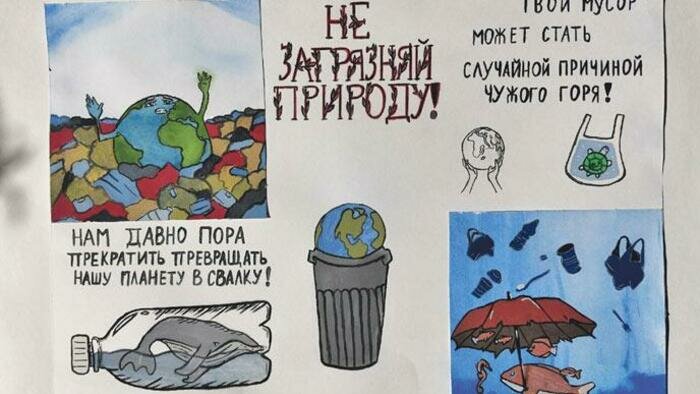 НЕ
ЗАГРЯЗНЯЙ
ПРИРОДУ!
ТВОЙ МУСОР
МОЖЕТ СТАТЬ
СЛУЧАЙНОЙ ПРИЧИНОЙ
ЧУЖОГО ГОРЯ!
НАМ ДАВНО ПОРА
ПРЕКРАТИТЬ ПРЕВРАЩАТЬ
НАШУ ПЛАНЕТУ В СВАЛКУ!